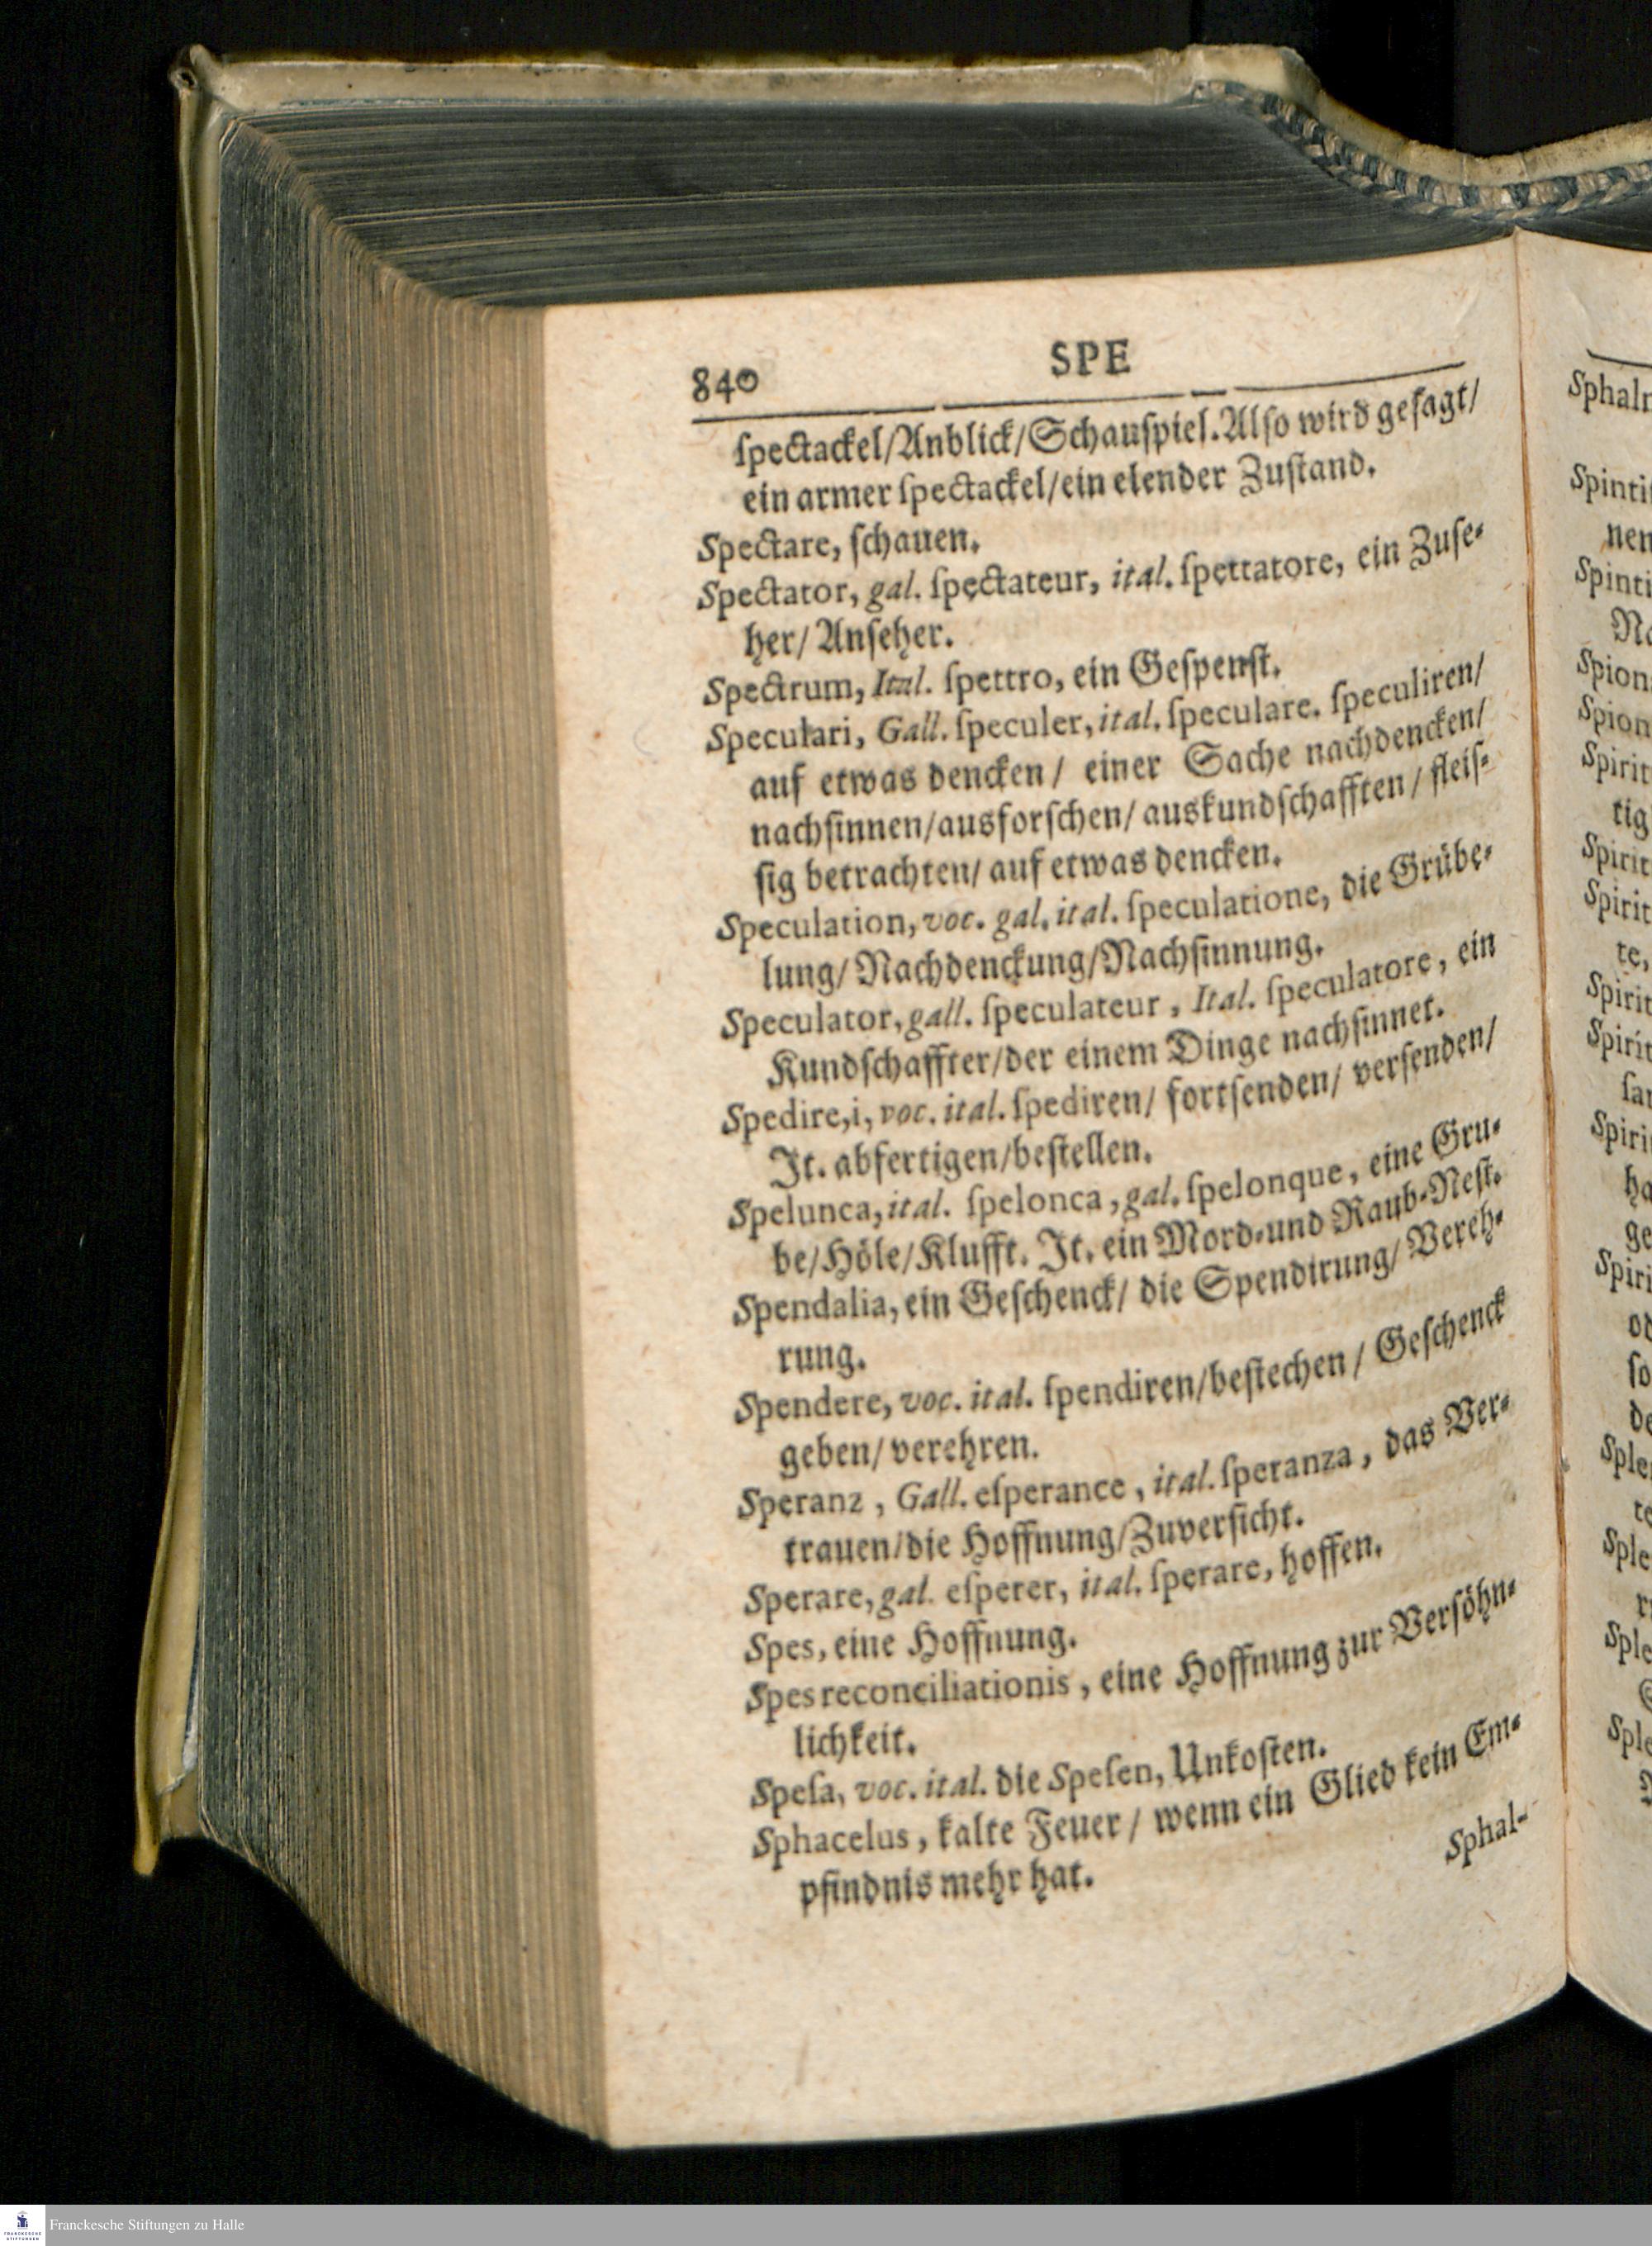 840 SPE
ſpectackel/Anblick/Schauſpiel. Alſo wird geſagt/
ein armer ſpectackel/ein elender Zuſtand.
Spectare, ſchauen.
Spectator, gal. ſpectateur, ital. ſpettatore, ein Zuſe-
her/ Anſeher.
Spectrum, Ital. ſpettro, ein Geſpenſt.
Speculari, Gall. ſpeculer, ital. ſpeculare. ſpeculiren/
auf etwas dencken/ einer Sache nachdencken/
nachſinnen/ausforſchen/ auskundſchafften/ fleiſ-
ſig betrachten/ auf etwas dencken.
Speculation, voc. gal. ital. ſpeculatione, die Grübe-
lung/ Nachdenckung/Nachſinnung.
Speculator, gall. ſpeculateur, Ital. ſpeculatore, ein
Kundſchaffter/der einem Dinge nachſinnet.
Spedire,i, voc. ital. ſpediren/ fortſenden/ verſenden/
It. abfertigen/beſtellen.
Spelunca, ital. ſpelonca, gal. ſpelonque, eine Gru-
be/Höle/Klufft. It. ein Mord-und Raub-Neſt.
Spendalia, ein Geſchenck/ die Spendirung/ Vereh-
rung.
Spendere, voc. ital. ſpendiren/beſtechen/ Geſchenck
geben/ verehren.
Speranz, Gall. eſperance, ital. ſperanza, das Ver-
trauen/die Hoffnung/Zuverſicht.
Sperare, gal. eſperer, ital. ſperare, hoffen.
Spes, eine Hoffnung.
Spes reconciliationis, eine Hoffnung zur Verſöhn-
lichkeit.
Speſa, voc. ital. die Speſen, Unkoſten.
Sphacelus, kalte Feuer/ wenn ein Glied kein Em-
pfindnis mehr hat.
Sphal-
Franckesche Stiftungen zu Halle